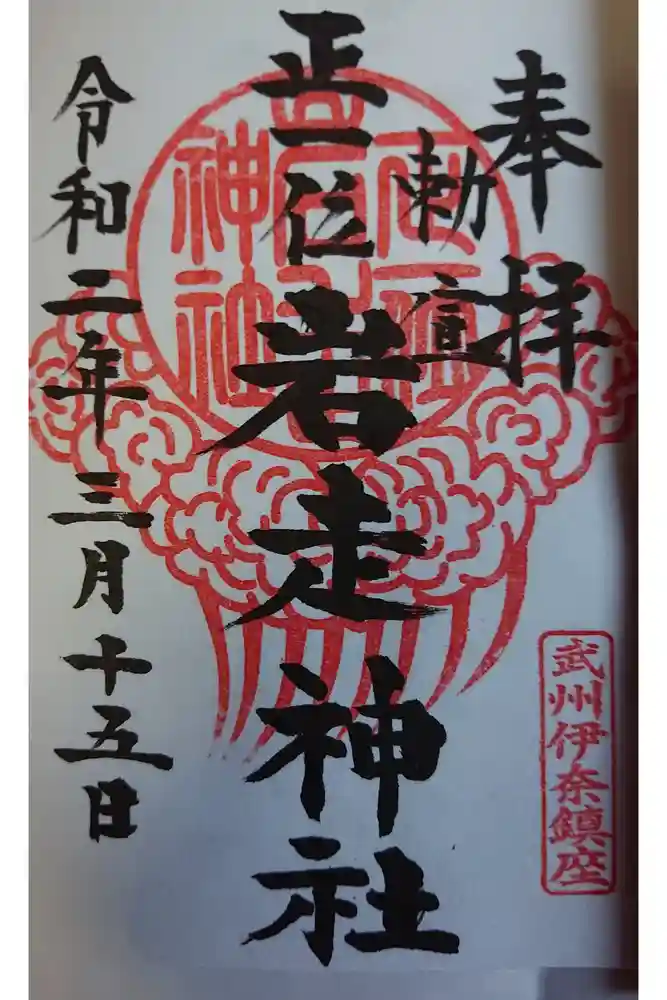 奉拝
勅宣
正一位
岩走神社
令和二年三月十五日
武州伊奈鎮座